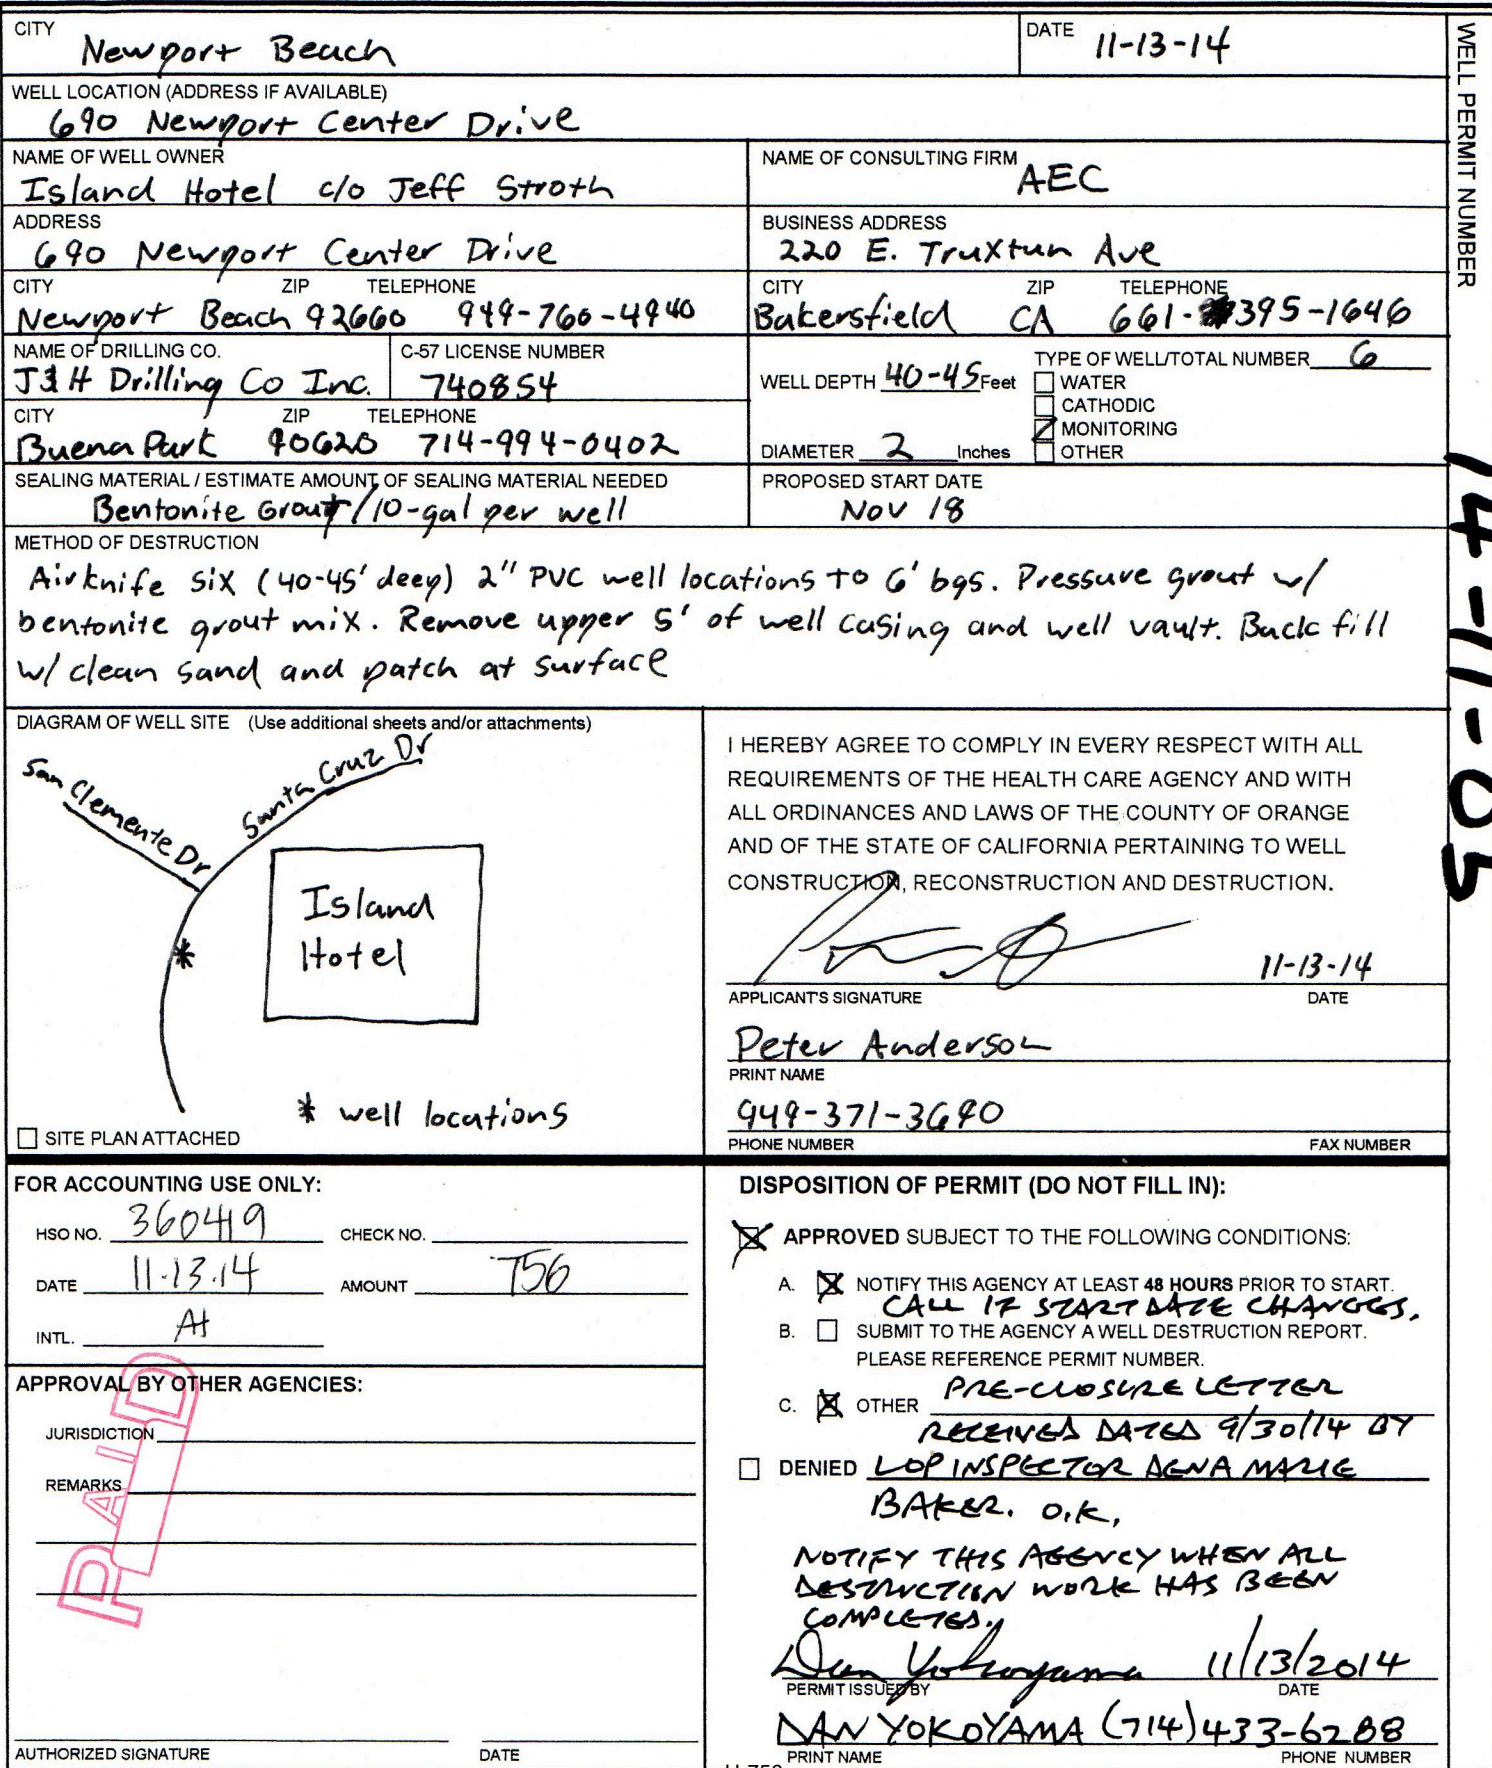 CITY Newport Beach DATE 11-13-14
WELL LOCATION (ADDRESS IF AVAILABLE)
690 Newport Center Drive
NAME OF WELL OWNER
Island Hotel c/o Jeff Stroth
NAME OF CONSULTING FIRM AEC
ADDRESS
690 Newport Center Drive
BUSINESS ADDRESS
220 E. Truxtun Ave
CITY ZIP TELEPHONE
Newport Beach 92660 949-760-4940
CITY ZIP TELEPHONE
Bakersfield CA 661-395-1646
NAME OF DRILLING CO.
J&H Drilling Co Inc.
C-57 LICENSE NUMBER
740854
CITY ZIP TELEPHONE
Buena Park 90620 714-994-0402
WELL DEPTH 40-45 Feet
DIAMETER 2 Inches
TYPE OF WELL/TOTAL NUMBER 6
WATER
CATHODIC
MONITORING
OTHER
SEALING MATERIAL / ESTIMATE AMOUNT OF SEALING MATERIAL NEEDED
Bentonite Grout/10-gal per well
PROPOSED START DATE
Nov 18
METHOD OF DESTRUCTION
Airknife six (40-45' deep) 2" PVC well locations to 6' bgs. Pressure grout w/
bentonite grout mix. Remove upper 5' of well casing and well vault. Back fill
w/ clean sand and patch at surface
WELL PERMIT NUMBER
14-11-05
DIAGRAM OF WELL SITE (Use additional sheets and/or attachments)
San Clemente Dr
Santa Cruz Dr
Island
Hotel
*
* well locations
SITE PLAN ATTACHED
I HEREBY AGREE TO COMPLY IN EVERY RESPECT WITH ALL
REQUIREMENTS OF THE HEALTH CARE AGENCY AND WITH
ALL ORDINANCES AND LAWS OF THE COUNTY OF ORANGE
AND OF THE STATE OF CALIFORNIA PERTAINING TO WELL
CONSTRUCTION, RECONSTRUCTION AND DESTRUCTION.
11-13-14
APPLICANT'S SIGNATURE DATE
Peter Anderson
PRINT NAME
949-371-3690
PHONE NUMBER FAX NUMBER
FOR ACCOUNTING USE ONLY:
HSO NO. 360419 CHECK NO.
DATE 11.13.14 AMOUNT 756
INTL.
APPROVAL BY OTHER AGENCIES:
JURISDICTION
REMARKS
PAID
AUTHORIZED SIGNATURE DATE
DISPOSITION OF PERMIT (DO NOT FILL IN):
APPROVED SUBJECT TO THE FOLLOWING CONDITIONS:
A. NOTIFY THIS AGENCY AT LEAST 48 HOURS PRIOR TO START.
CALL IF START DATE CHANGES.
B. SUBMIT TO THE AGENCY A WELL DESTRUCTION REPORT.
PLEASE REFERENCE PERMIT NUMBER.
C. OTHER PRE-CLOSURE LETTER
RECEIVED DATED 9/30/14 BY
DENIED LOP INSPECTOR DENA MARIE
BAKER. O.K,
NOTIFY THIS AGENCY WHEN ALL
DESTRUCTION WORK HAS BEEN
COMPLETED.
Dan Yokoyama 11/13/2014
PERMIT ISSUED BY DATE
DAN YOKOYAMA (714) 433-6288
PRINT NAME PHONE NUMBER